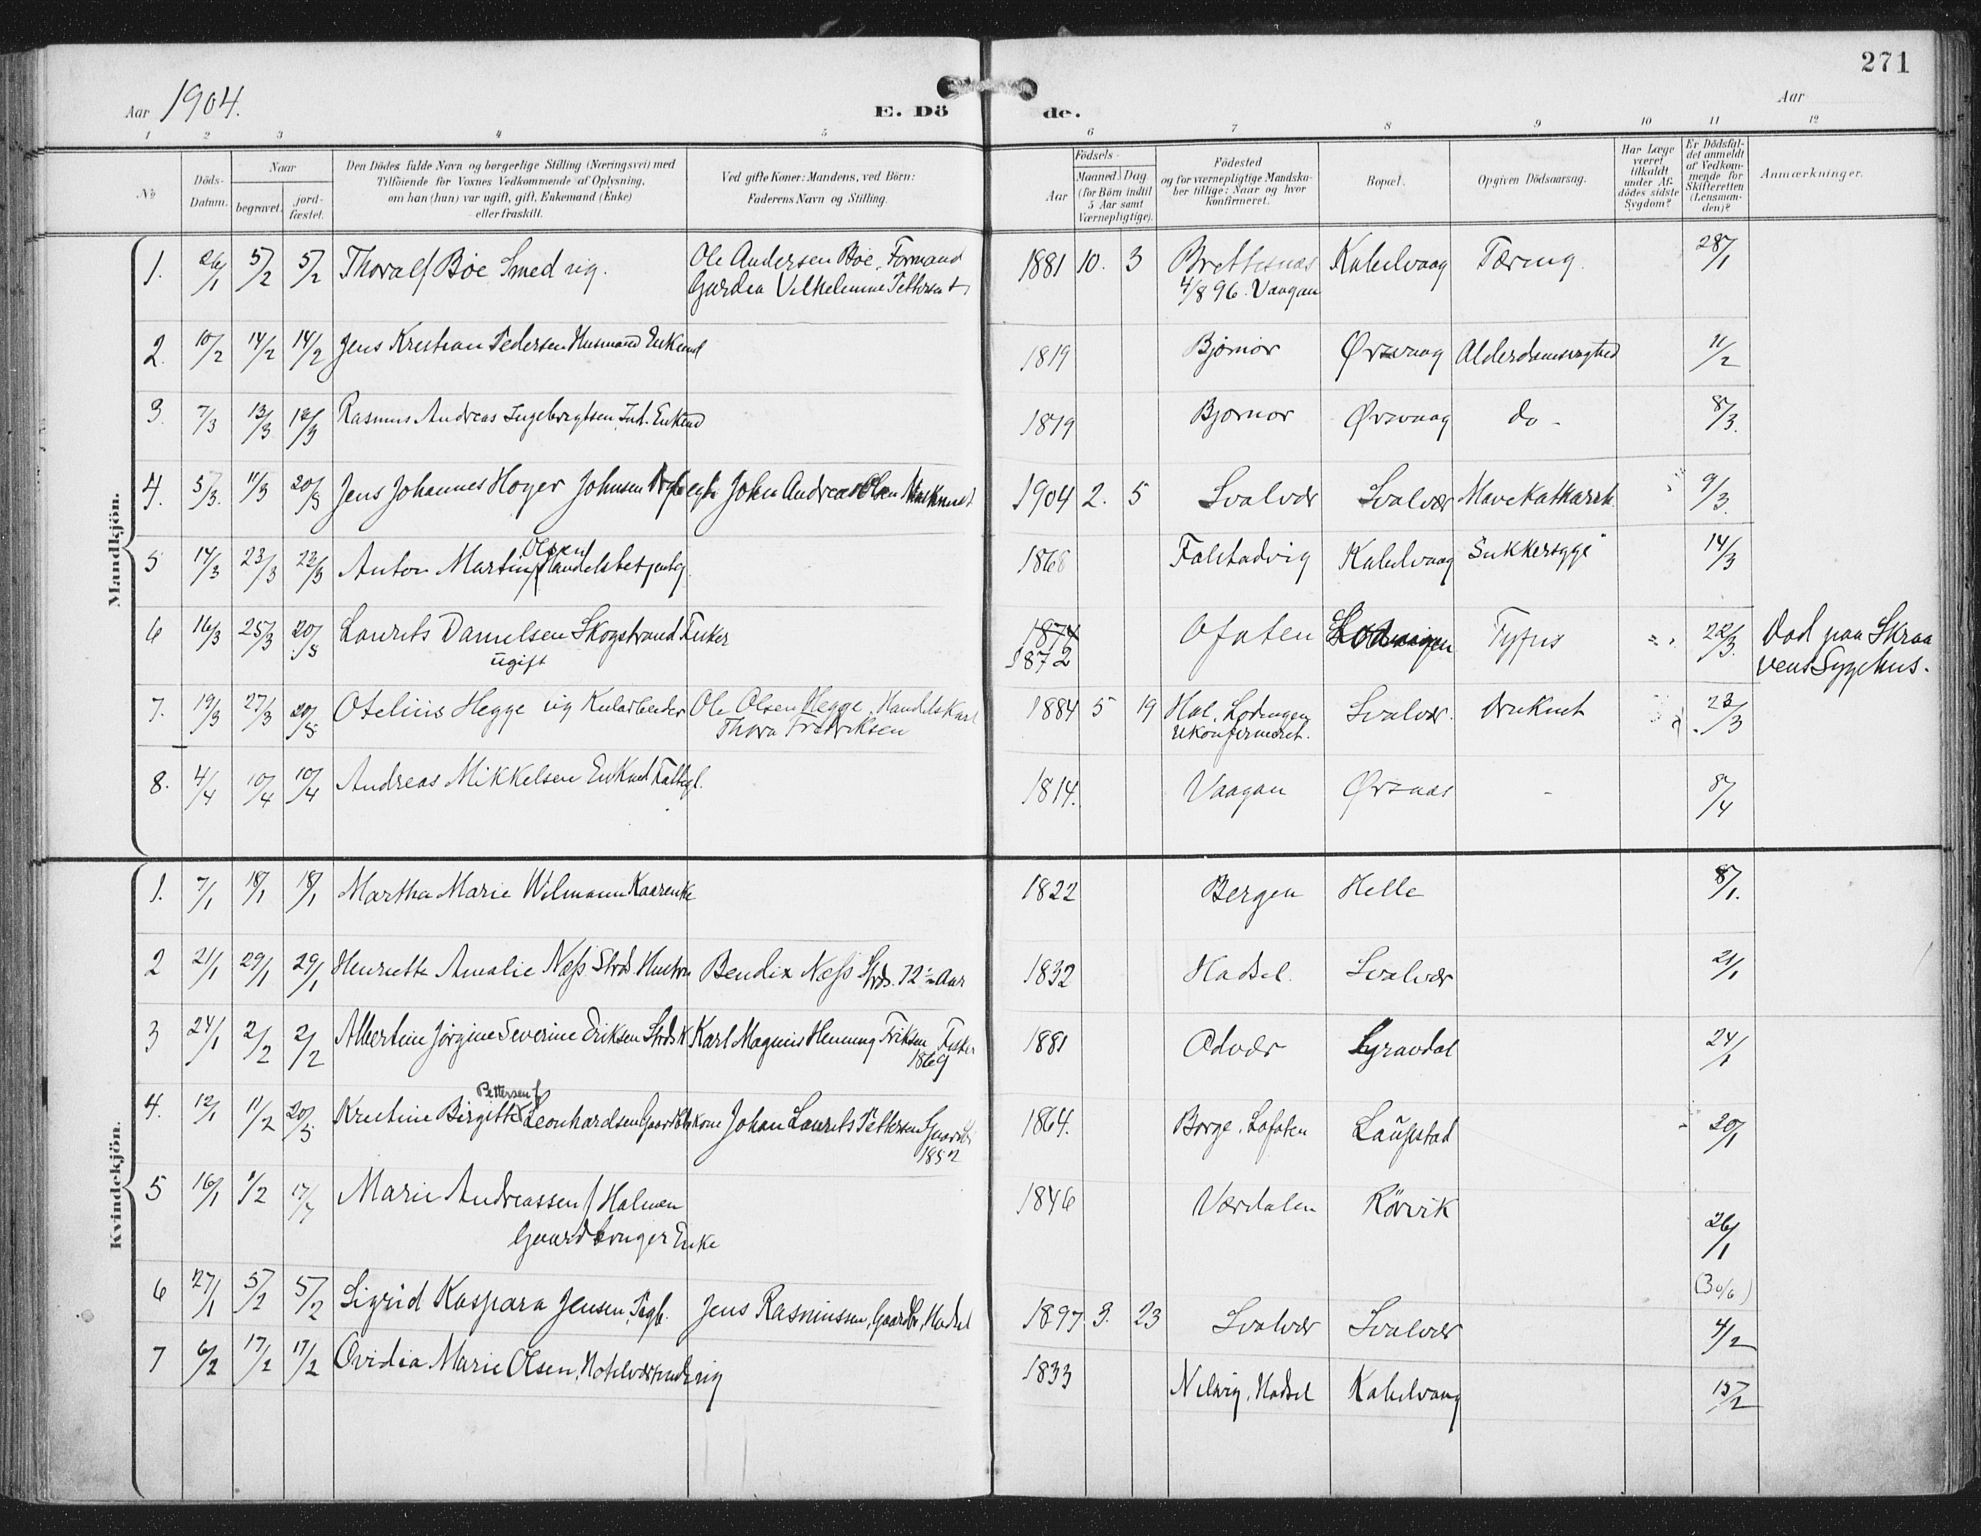 271
Aar 1904.
E. Dö de.
Aar
1 2 3 4 5 6 7 8 9 10 11 12
No
Döds-Datum.
Naar
begravet.
jord-fæstet.
Den Dödes fulde Navn og borgerlige Stilling (Næringsvei) med
Tilföiende for Voxnes Vedkommende af Oplysning,
om han (hun) var ugift, gift, Enkemand (Enke)
eller fraskilt.
Ved gifte Koner: Mandens, ved Börn:
Faderens Navn og Stilling.
Födsels-
Aar
Maaned. Dag
(for Börn indtil
5 Aar samt
Værnepligtige).
Födested
og for værnepligtige Mandska-
ber tillige: Naar og hvor
konfirmeret.
Bopæl.
Opgiven Dödsaarsag.
Har Læge
været
tilkaldt
under Af-
dödes sidste
Sygdom?
Er Dödsfal-
det anmeldt
af Vedkom-
mende for
Skifteretten
(Lensman-
den)?
Anmærkninger.
Mandkjön.
1. 26/1 5/2 5/2 Thoralf Böe Smed ug. Ole Andersen Böe, Formand 1881 10. 3 Brettesnæs Kabelvaag Tæring. 28/1
Gurdea Vilhelmine Pettersen 4/8 96. Vaagan
2. 10/2 14/2 14/2 Jens Kristian Pedersen Husmand Enkemd 1819 Bjørnør Ørsvaag Alderdomssvaghed 11/2
3. 7/3 13/3 13/3 Rasmus Andreas Ingebrigtsen Ind. Enkemd 1819 Bjørnør Ørsvaag do - 8/3.
4. 5/3. 11/3 20/3 Jens Johannes Høyer Johnsen John Andreas Olsen 1904 2. 5 Svolvær Svolvær Mavekatharrh. 9/3.
Olsen
5 14/3 23/3 23/3 Anton Martin Handelsbetjent 1868 Falstadvig Kabelvaag Sukkersyge 14/3
6 16/3 25/3 20/8 Laurits Danielsen Skogstrand Fisker 1874 Ofoten Lødingen Typus 22/3. Død paa Skraa
ugift 1872 vens Sygehus.
7. 19/3 27/3 20/8 Otelius Hegge ug Kularbeider Ole Olsen Hegge, Handelskarl 1884 5 19 Hol, Lødingen Svolvær. Druknet 23/3
Thora Fredriksen ukonfirmeret.
8. 4/4 10/4 10/4 Andreas Mikkelsen Enkmd Fattigl. 1814. Vaagan Ørsnæs - 8/4
Kvindekjön.
1. 7/1 18/1 18/1 Martha Marie Wilmann Kaarenke 1822 Bergen Helle 8/1.
2 21/1 29/1 29/1 Henriette Amalie Næss Strds. Hustru Bendix Næss Strds. 72 Aar 1832 Hadsel. Svolvær 21/1
3 24/1 2/2 2/2 Albertine Jørgine Severine Eriksen Strds K Karl Magnus Henning Eriksen, Fisker 1881 Odvær Lyravdal 24/1
1869
Pettersen f.
4. 12/1 11/2 20/5 Kristine Birgitte Leonhardsen Gaardbr kone Johan Laurits Pettersen Gaardbr. 1864. Borge, Lofoten Laupstad 20/1
1852
5 16/1 1/2 17/7 Marie Andreassen f Holmen 1846 Værdalen Rörvik 26/1
Gaardbruger Enke
(30/6)
6 27/1 5/2 5/2 Sigrid Kaspara Jensen, Pgb. Jens Rasmussen, Gaardbr, Hadsel 1897. 3. 23 Svolvær Svolvær 4/2
7 6/2 17/2 17/2 Ovidia Marie Olsen, Hotelværtinde ug 1833 Nelvig, Hadsel Kabelvaag 15/2